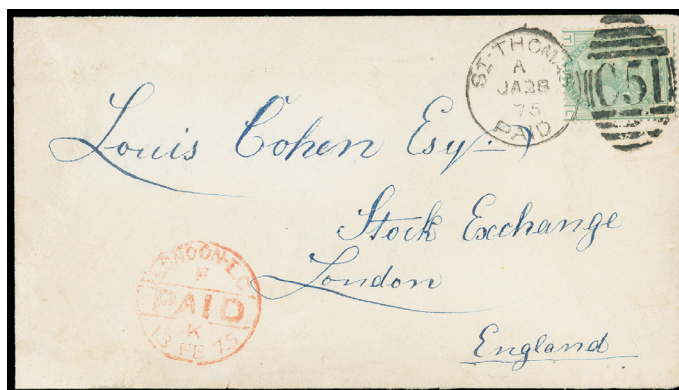 ST. THOMAS
A
JA 28
75
PAID
C51
Louis Cohen Esqr.
Stock Exchange
London
England
LONDON-E.C
PAID
K
13 FE 75